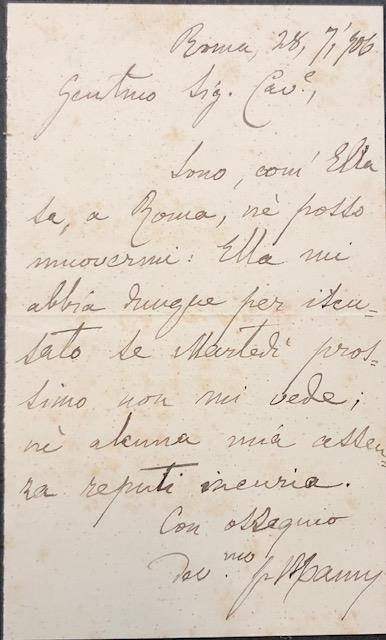 Roma, 28, 7, 906
Gentmo Sig. Cav.e,
Sono, com' Ella
sa, a Roma, nè posso
muovermi: Ella mi
abbia dunque per iscu-
sato se Martedì pros-
simo non mi vede;
nè alcuna mia assen-
za reputi incuria.
Con ossequio
Dev.mo